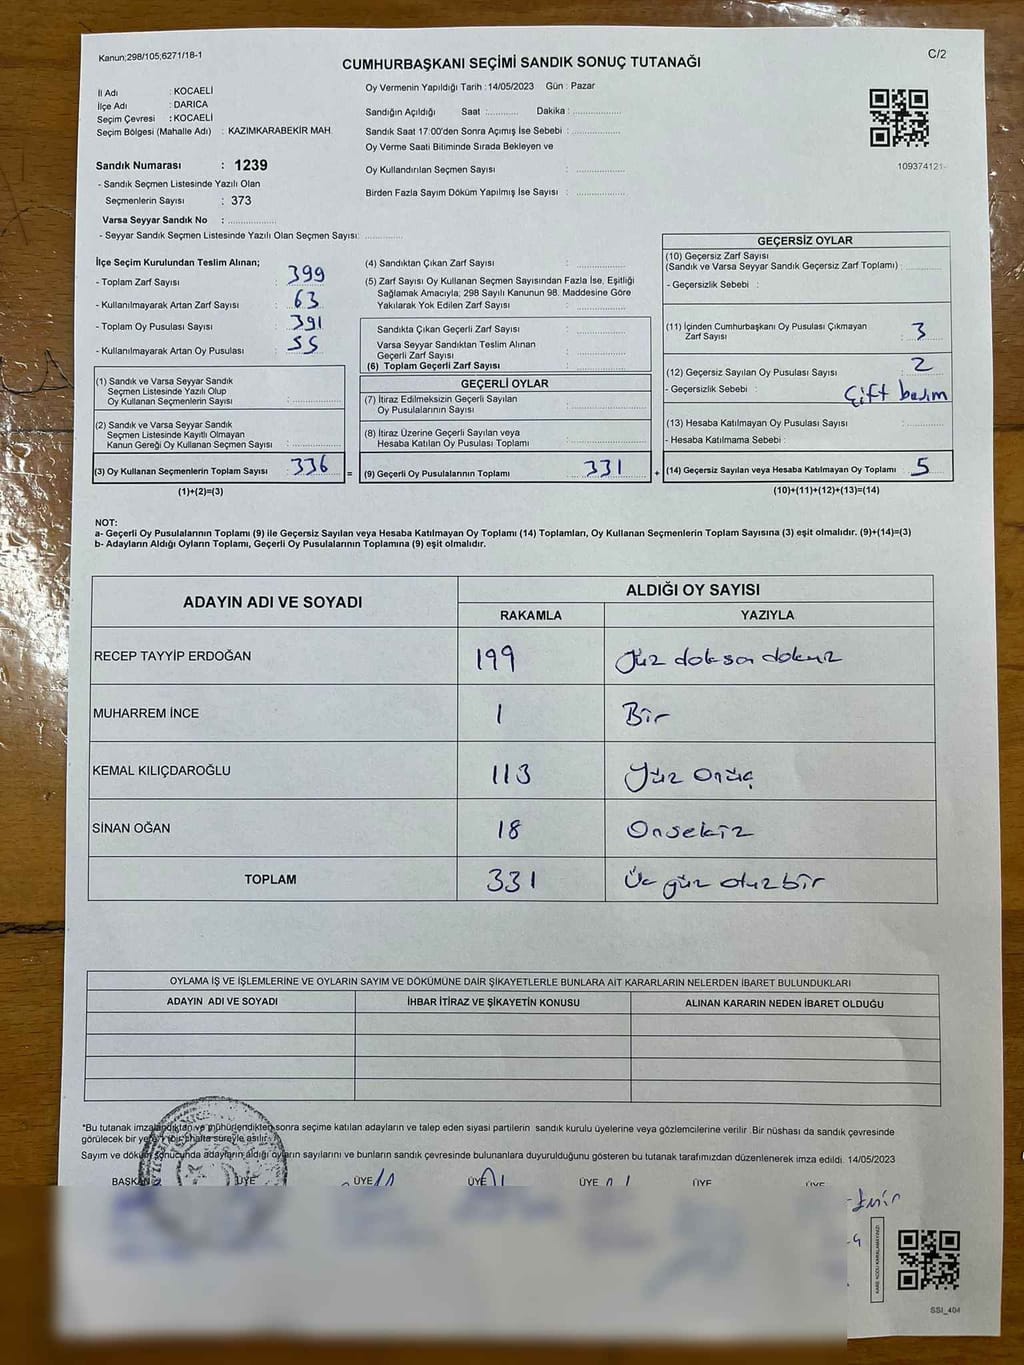 Kanun;298/105;6271/18-1
C/2
CUMHURBAŞKANI SEÇİMİ SANDIK SONUÇ TUTANAĞI
İl Adı : KOCAELİ
İlçe Adı : DARICA
Seçim Çevresi : KOCAELİ
Seçim Bölgesi (Mahalle Adı) : KAZIMKARABEKİR MAH.
Sandık Numarası : 1239
- Sandık Seçmen Listesinde Yazılı Olan
Seçmenlerin Sayısı : 373
Varsa Seyyar Sandık No : ..................
- Seyyar Sandık Seçmen Listesinde Yazılı Olan Seçmen Sayısı: ..............
Oy Vermenin Yapıldığı Tarih : 14/05/2023 Gün : Pazar
Sandığın Açıldığı Saat :............ Dakika : ..................
Sandık Saat 17:00'den Sonra Açımış İse Sebebi : ..................
Oy Verme Saati Bitiminde Sırada Bekleyen ve
Oy Kullandırılan Seçmen Sayısı : ..................
Birden Fazla Sayım Döküm Yapılmış İse Sayısı : ..................
109374121-
İlçe Seçim Kurulundan Teslim Alınan;
- Toplam Zarf Sayısı : 399
- Kullanılmayarak Artan Zarf Sayısı : 63
- Toplam Oy Pusulası Sayısı : 391
- Kullanılmayarak Artan Oy Pusulası : 55
(1) Sandık ve Varsa Seyyar Sandık
Seçmen Listesinde Yazılı Olup
Oy Kullanan Seçmenlerin Sayısı : ..................
(2) Sandık ve Varsa Seyyar Sandık
Seçmen Listesinde Kayıtlı Olmayan
Kanun Gereği Oy Kullanan Seçmen Sayısı : ..................
(3) Oy Kullanan Seçmenlerin Toplam Sayısı 336 =
(1)+(2)=(3)
(4) Sandıktan Çıkan Zarf Sayısı : ..................
(5) Zarf Sayısı Oy Kullanan Seçmen Sayısından Fazla İse, Eşitliği
Sağlamak Amacıyla; 298 Sayılı Kanunun 98. Maddesine Göre
Yakılarak Yok Edilen Zarf Sayısı : ..................
Sandıkta Çıkan Geçerli Zarf Sayısı : ..................
Varsa Seyyar Sandıktan Teslim Alınan
Geçerli Zarf Sayısı : ..................
(6) Toplam Geçerli Zarf Sayısı : ..................
GEÇERLİ OYLAR
(7) İtiraz Edilmeksizin Geçerli Sayılan
Oy Pusulalarının Sayısı : ..................
(8) İtiraz Üzerine Geçerli Sayılan veya
Hesaba Katılan Oy Pusulaları Toplamı : ..................
(9) Geçerli Oy Pusulalarının Toplamı : 331 +
GEÇERSİZ OYLAR
(10) Geçersiz Zarf Sayısı
(Sandık ve Varsa Seyyar Sandık Geçersiz Zarf Toplamı) : ..............
- Geçersizlik Sebebi :
(11) İçinden Cumhurbaşkanı Oy Pusulası Çıkmayan
Zarf Sayısı : 3
(12) Geçersiz Sayılan Oy Pusulası Sayısı : 2
- Geçersizlik Sebebi : Çift basım
(13) Hesaba Katılmayan Oy Pusulası Sayısı : ..............
- Hesaba Katılmama Sebebi :
(14) Geçersiz Sayılan veya Hesaba Katılmayan Oy Toplamı 5
(10)+(11)+(12)+(13)=(14)
NOT:
a- Geçerli Oy Pusulalarının Toplamı (9) ile Geçersiz Sayılan veya Hesaba Katılmayan Oy Toplamı (14) Toplamları, Oy Kullanan Seçmenlerin Toplam Sayısına (3) eşit olmalıdır. (9)+(14)=(3)
b- Adayların Aldığı Oyların Toplamı, Geçerli Oy Pusulalarının Toplamına (9) eşit olmalıdır.
ADAYIN ADI VE SOYADI ALDIĞI OY SAYISI
RAKAMLA YAZIYLA
RECEP TAYYİP ERDOĞAN 199 Yüz doksan dokuz
MUHARREM İNCE 1 Bir
KEMAL KILIÇDAROĞLU 113 Yüz Onüç
SİNAN OĞAN 18 Onsekiz
TOPLAM 331 Üç yüz otuzbir
OYLAMA İŞ VE İŞLEMLERİNE VE OYLARIN SAYIM VE DÖKÜMÜNE DAİR ŞİKAYETLERLE BUNLARA AİT KARARLARIN NELERDEN İBARET BULUNDUKLARI
ADAYIN ADI VE SOYADI İHBAR İTİRAZ VE ŞİKAYETİN KONUSU ALINAN KARARIN NEDEN İBARET OLDUĞU
*Bu tutanak imzalandıktan ve mühürlendikten sonra seçime katılan adayların ve talep eden siyasi partilerin sandık kurulu üyelerine veya gözlemcilerine verilir. Bir nüshası da sandık çevresinde
görülecek bir yere 1 bir hafta süreyle asılır.
Sayım ve döküm sonucunda adayların aldığı oyların sayılarını ve bunların sandık çevresinde bulunanlara duyurulduğunu gösteren bu tutanak tarafımızdan düzenlenerek imza edildi. 14/05/2023
BAŞKAN ÜYE ÜYE ÜYE ÜYE ÜYE ÜYE
KARE KODU KARALAMAYINIZ!
SSI_404